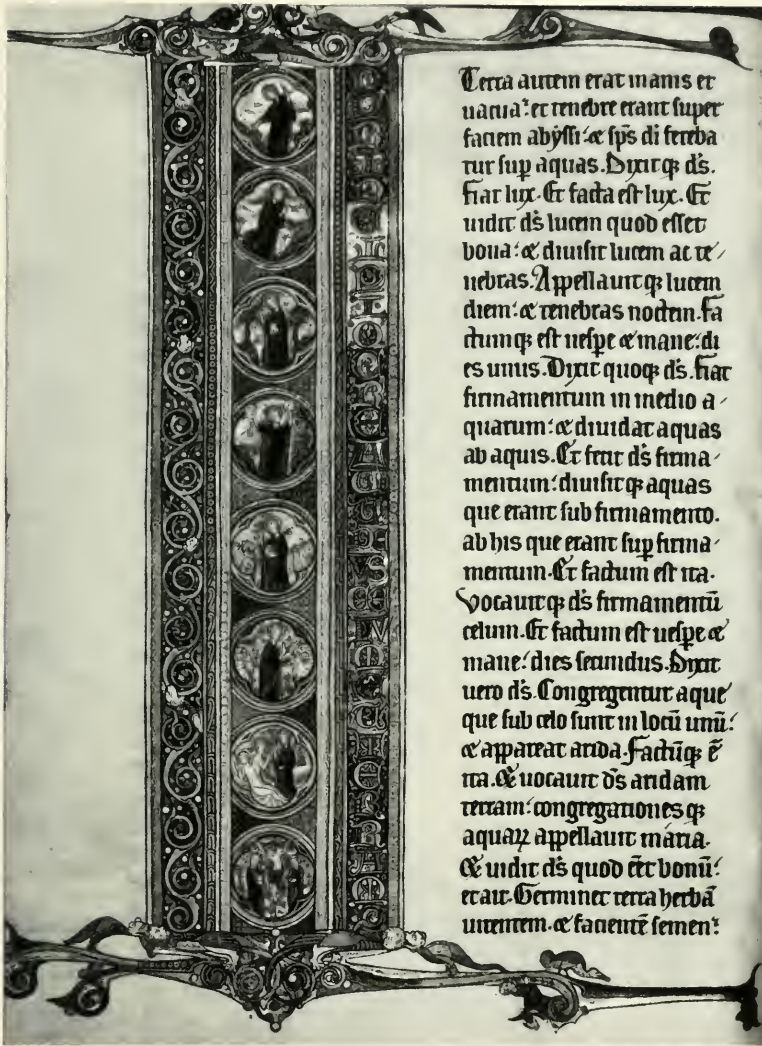 Terra autem erat inanis et
uacua: et tenebre erant super
faciem abyssi: & sps di fereba
tur sup aquas. Dixitq ds.
Fiat lux. Et facta est lux. Et
uidit ds lucem quod esset
bona: & diuisit lucem ac te/
nebras. Appellauitq lucem
diem: & tenebras noctem. Fa
ctumq est uespe & mane: di
es unus. Dixit quoq ds. Fiat
firmamentum in medio a/
quarum: & diuidat aquas
ab aquis. Et fecit ds firma/
mentum: diuisitq aquas
que erant sub firmamento.
ab his que erant sup firma/
mentum. Et factum est ita.
Vocauitq ds firmamentū
celum. Et factum est uespe &
mane: dies secundus. Dixit
uero ds. Congregentur aque
que sub celo sunt in locū unū:
& appareat arida. Factūq ē
ita. & uocauit ds aridam
terram: congregationesq
aquaꝝ appellauit maria.
& uidit ds quod eēt bonū:
et ait. Germinet terra herbā
uirentem. & facientē semen: